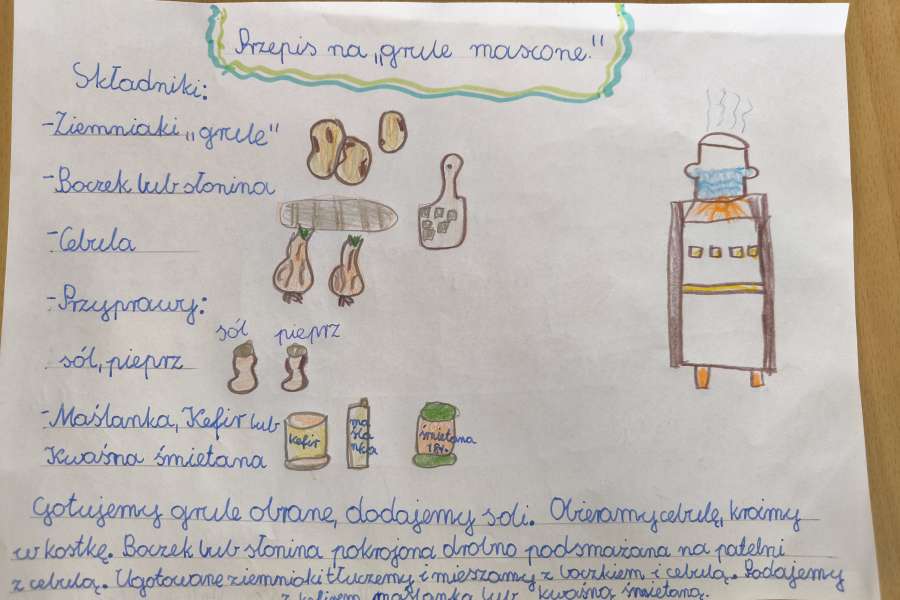 Przepis na „grule mascone."
Składniki:
- Ziemniaki „grule"
- Boczek lub słonina
- Cebula
- Przyprawy:
sól pieprz
sól, pieprz
- Maślanka, Kefir lub
Kwaśna śmietana
kefir
ma
śla
nka
śmietana
18%.
Gotujemy grule obrane, dodajemy soli. Obieramy cebulę, kroimy
w kostkę. Boczek lub słonina pokrojona drobno podsmażana na patelni
z cebulą. Ugotowane ziemniaki tłuczemy i mieszamy z boczkiem i cebulą. Podajemy
z kefirem, maślanką lub kwaśną śmietaną.